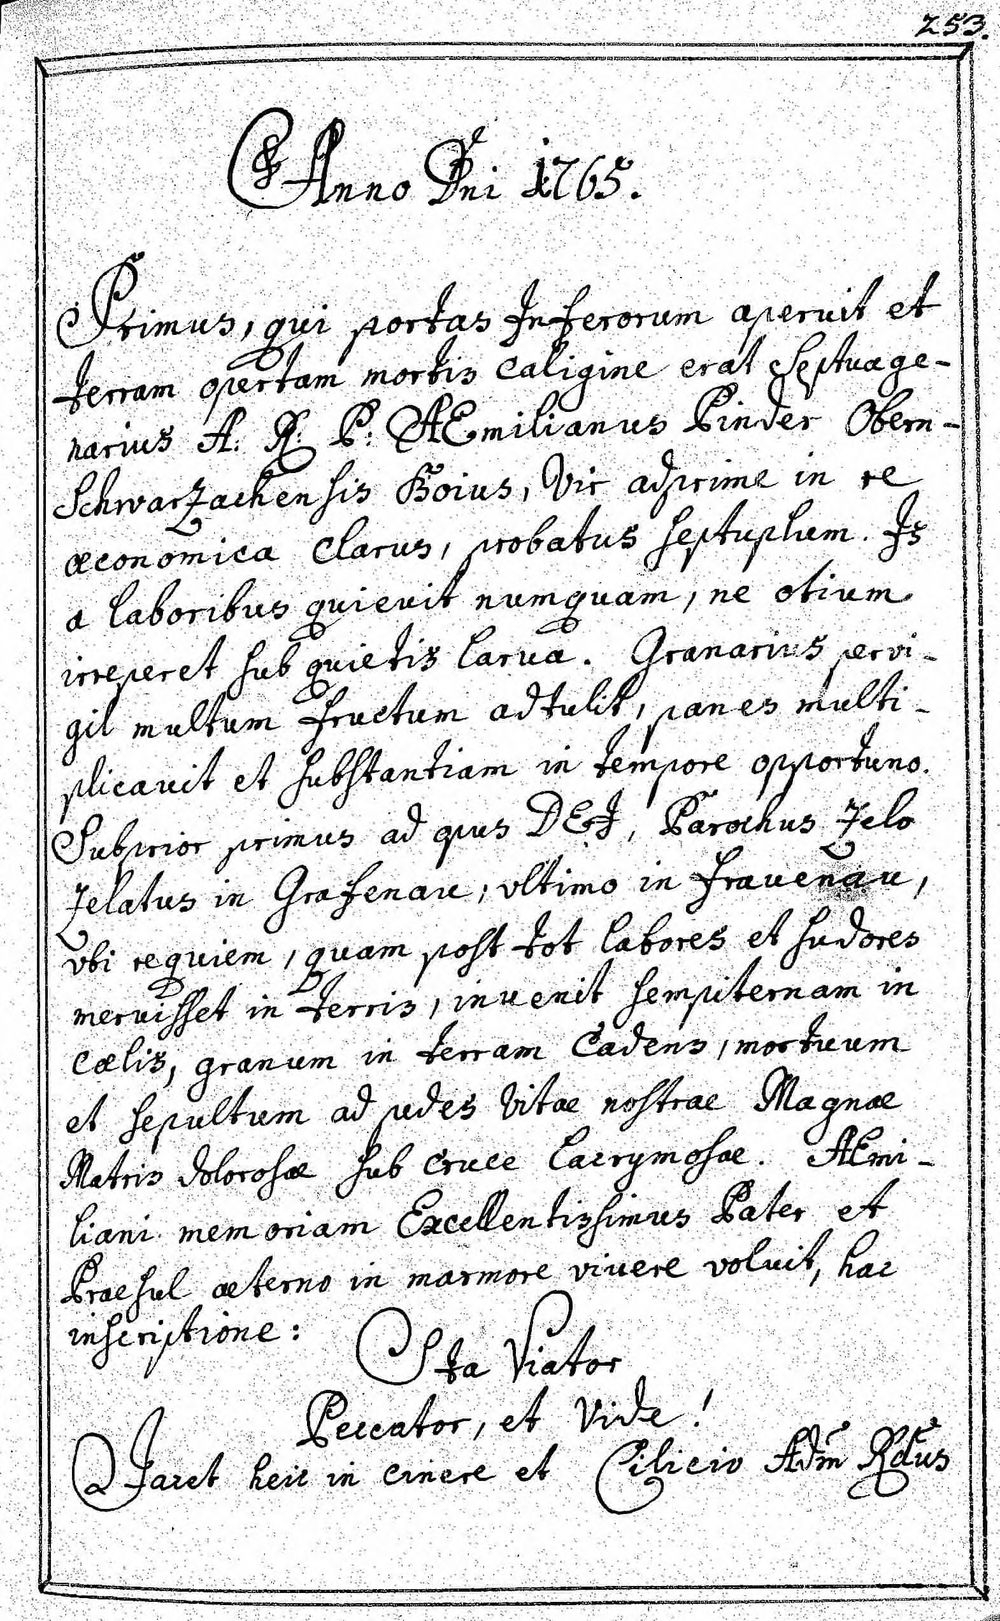 253.
Anno Dni 1765.
Primus, qui portas Inferorum aperuit et
terram opertam mortis caligine erat Septuage-
narius A. R. P. AEmilianus Pinder Obern-
Schwarzachensis Boius, Vir adprime in re
œconomica Clarus, probatus septuplum. Is
a laboribus quievit numquam, ne otium
irreperet sub quietis larva. Granarius pervi-
gil multum fructum adtulit, panes multi-
plicavit et substantiam in tempore opportuno.
Subprior primus ad opus DEI, Parochus Zelo
Zelatus in Grafenau, ultimo in Frauenau,
vbi requiem, quam post tot labores et sudores
meruisset in terris, invenit sempiternam in
Cœlis, granum in terram Cadens, mortuum
et sepultum ad pedes Vitae nostrae Magnae
Matris dolorosae sub Cruce lacrymosae. AEmi-
liani memoriam Excellentissimus Pater et
Praesul æterno in marmore vivere voluit, hac
inscriptione:
Sta Viator
Peccator, et Vide!
Jacet heic in cinere et Cilicio Adm Rdus